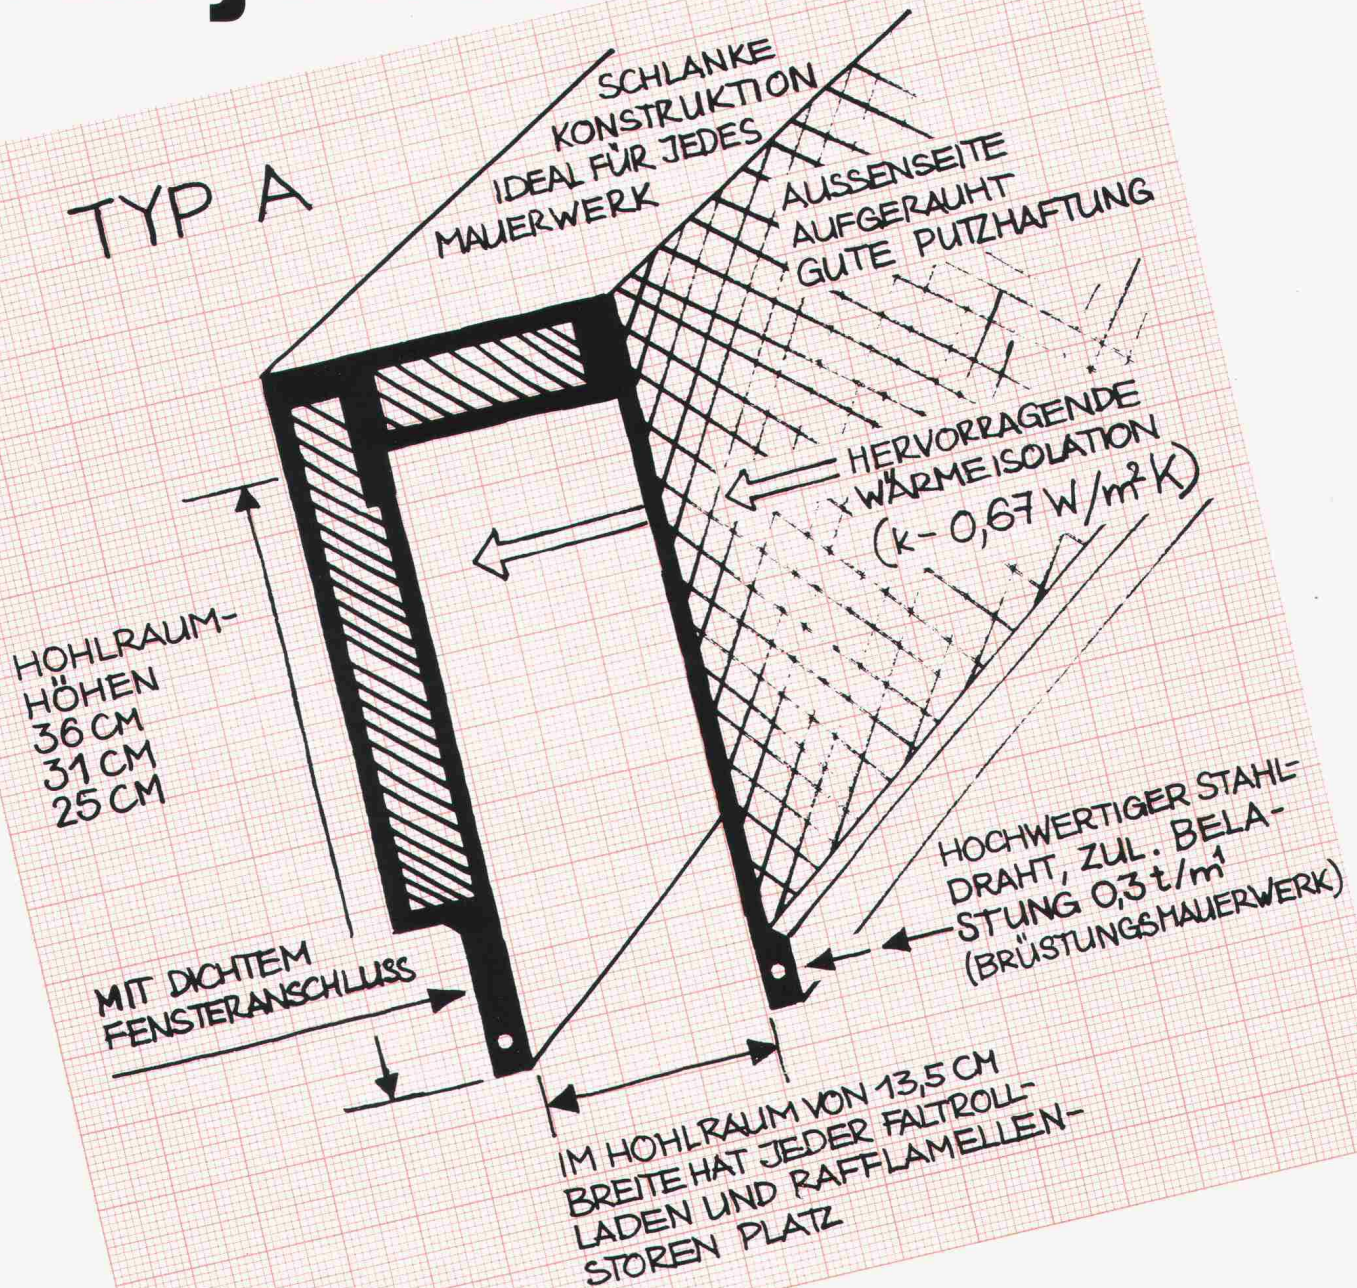 TYP A
SCHLANKE
KONSTRUKTION
IDEAL FÜR JEDES
MAUERWERK
AUSSENSEITE
AUFGERAUHT
GUTE PUTZHAFTUNG
HERVORRAGENDE
WÄRMEISOLATION
(k – 0,67 W/m² K)
HOHLRAUM-
HÖHEN
36 CM
31 CM
25 CM
HOCHWERTIGER STAHL-
DRAHT, ZUL. BELA-
STUNG 0,3 t/m¹
(BRÜSTUNGSMAUERWERK)
MIT DICHTEM
FENSTERANSCHLUSS
IM HOHLRAUM VON 13,5 CM
BREITE HAT JEDER FALTROLL-
LADEN UND RAFFLAMELLEN-
STOREN PLATZ